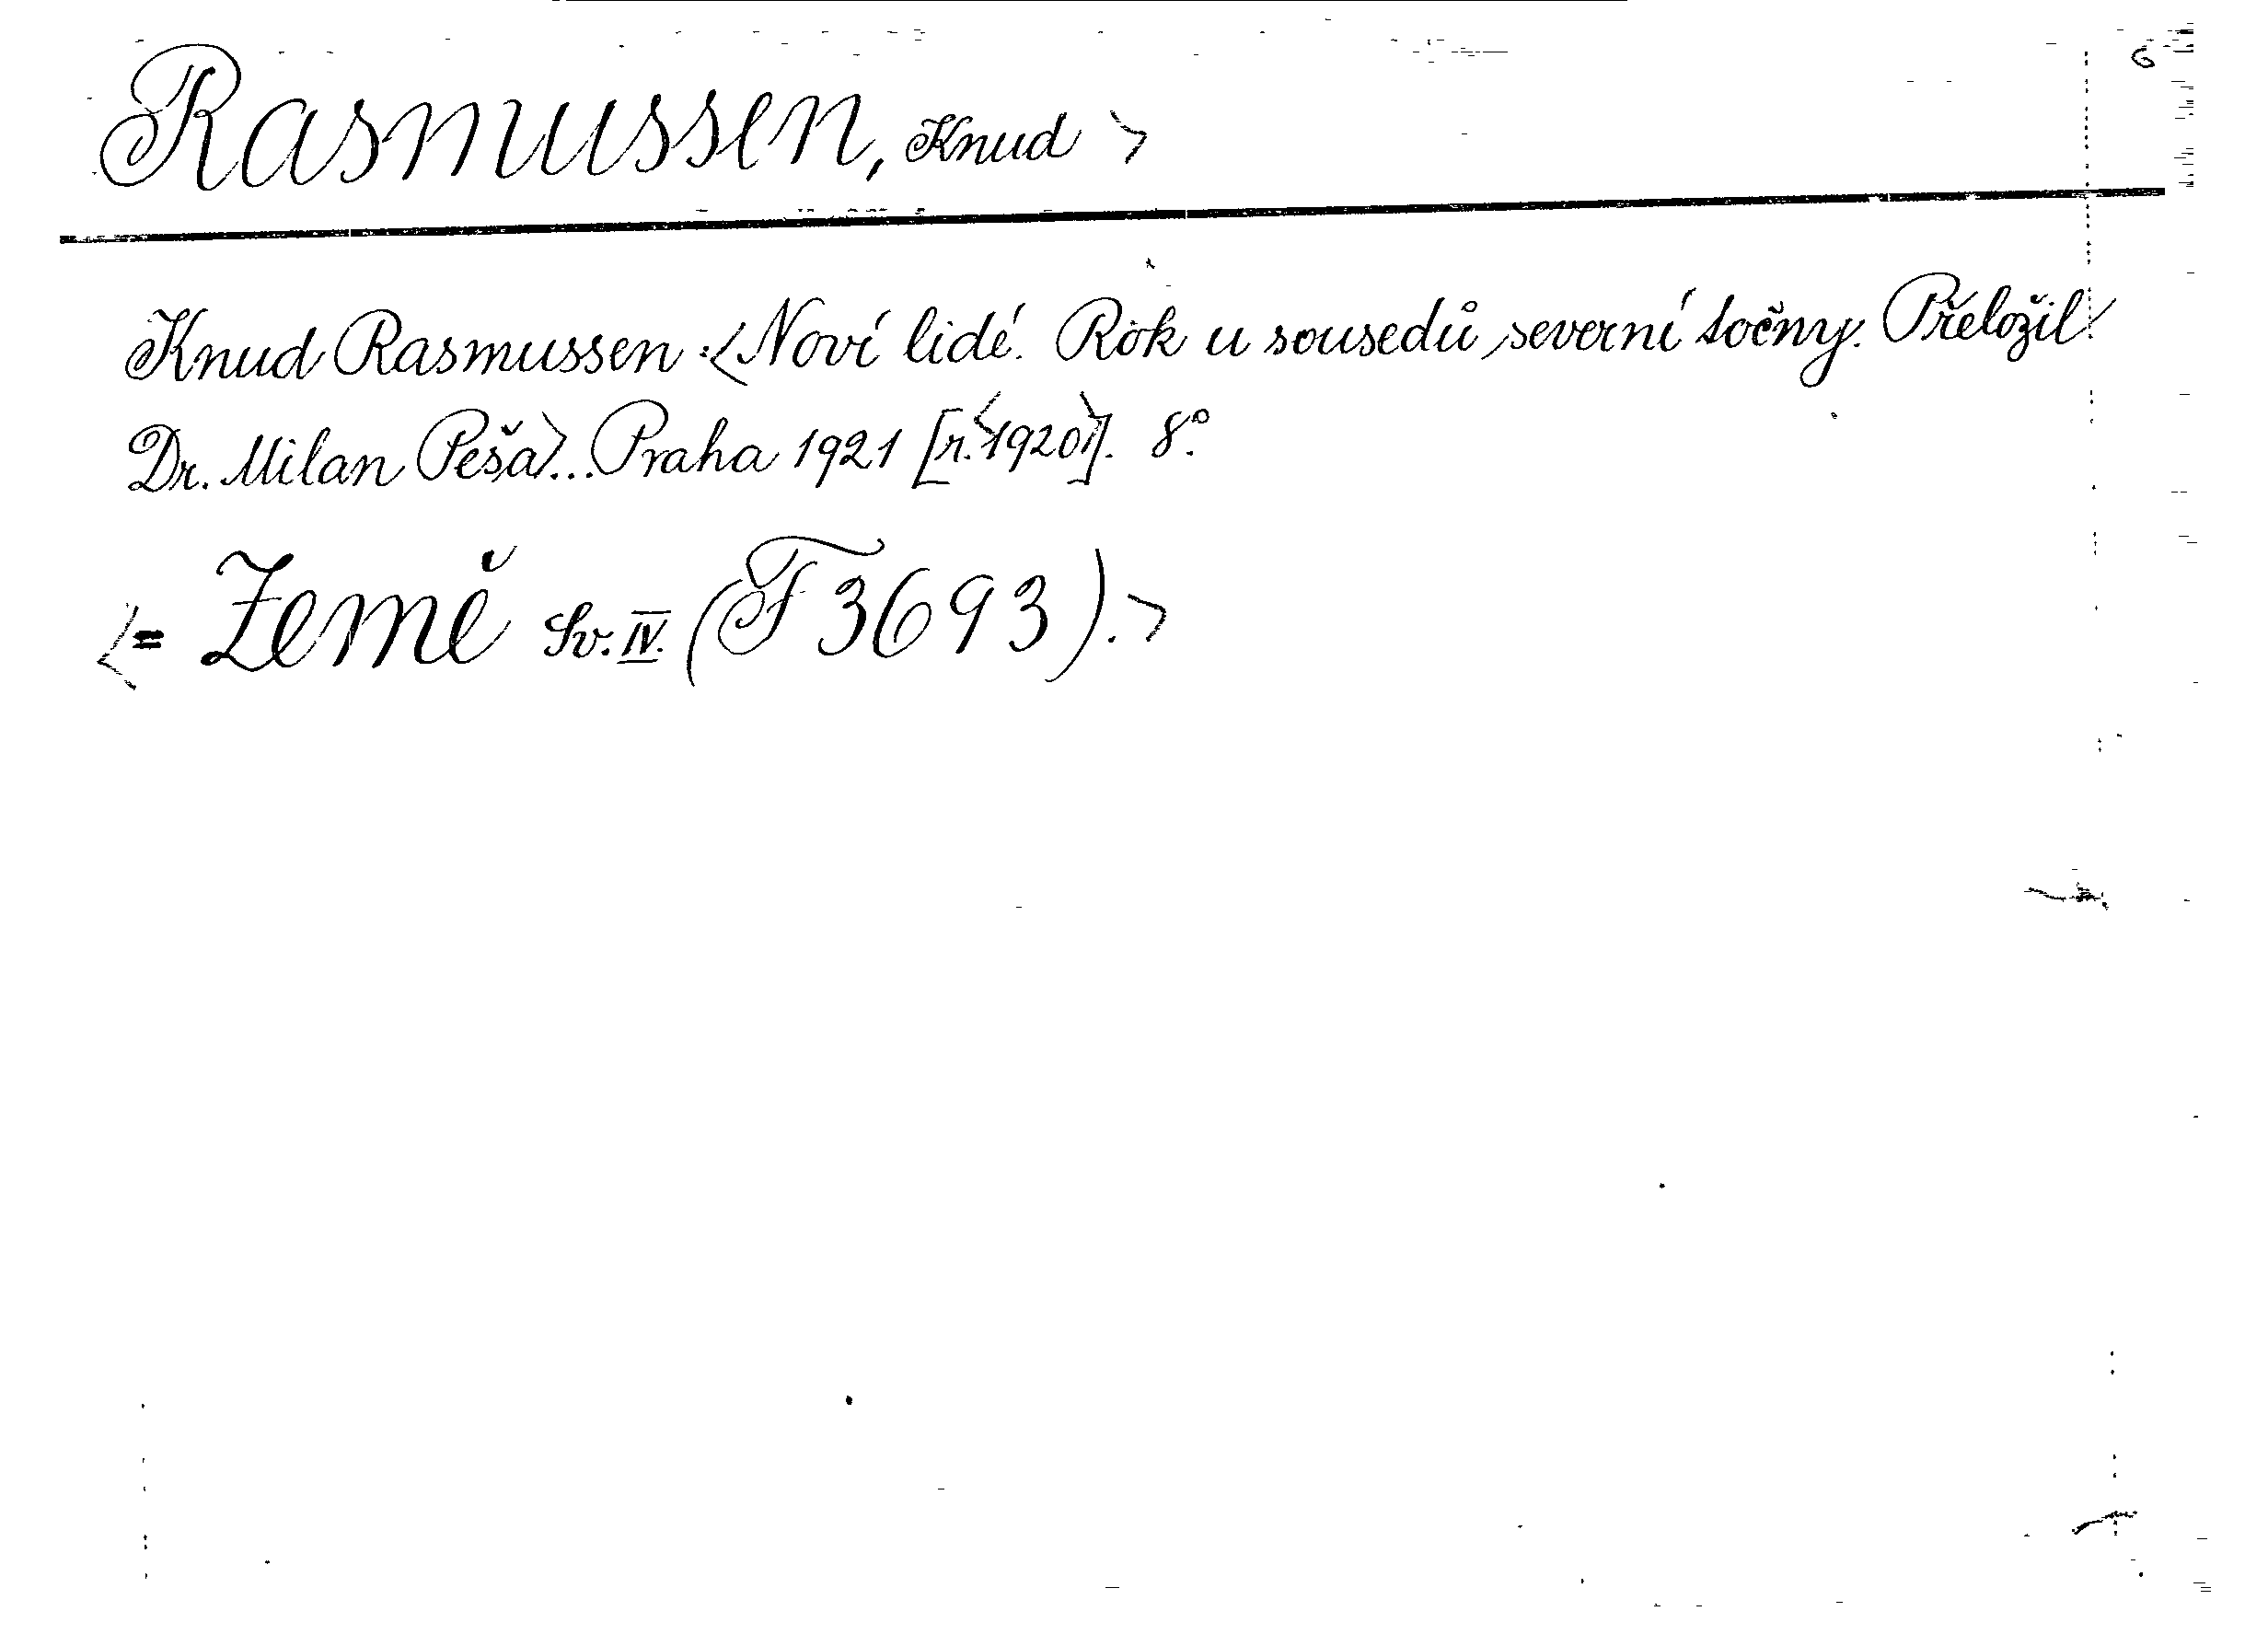 6
Rasmussen, Knud >
Knud Rasmussen: <Noví lidé. Rok u sousedů severní točny. Přeložil
Dr. Milan Peša>... Praha 1921 [r. <1920>]. 8°.
<= Země Sv. IV. (F 3693). >